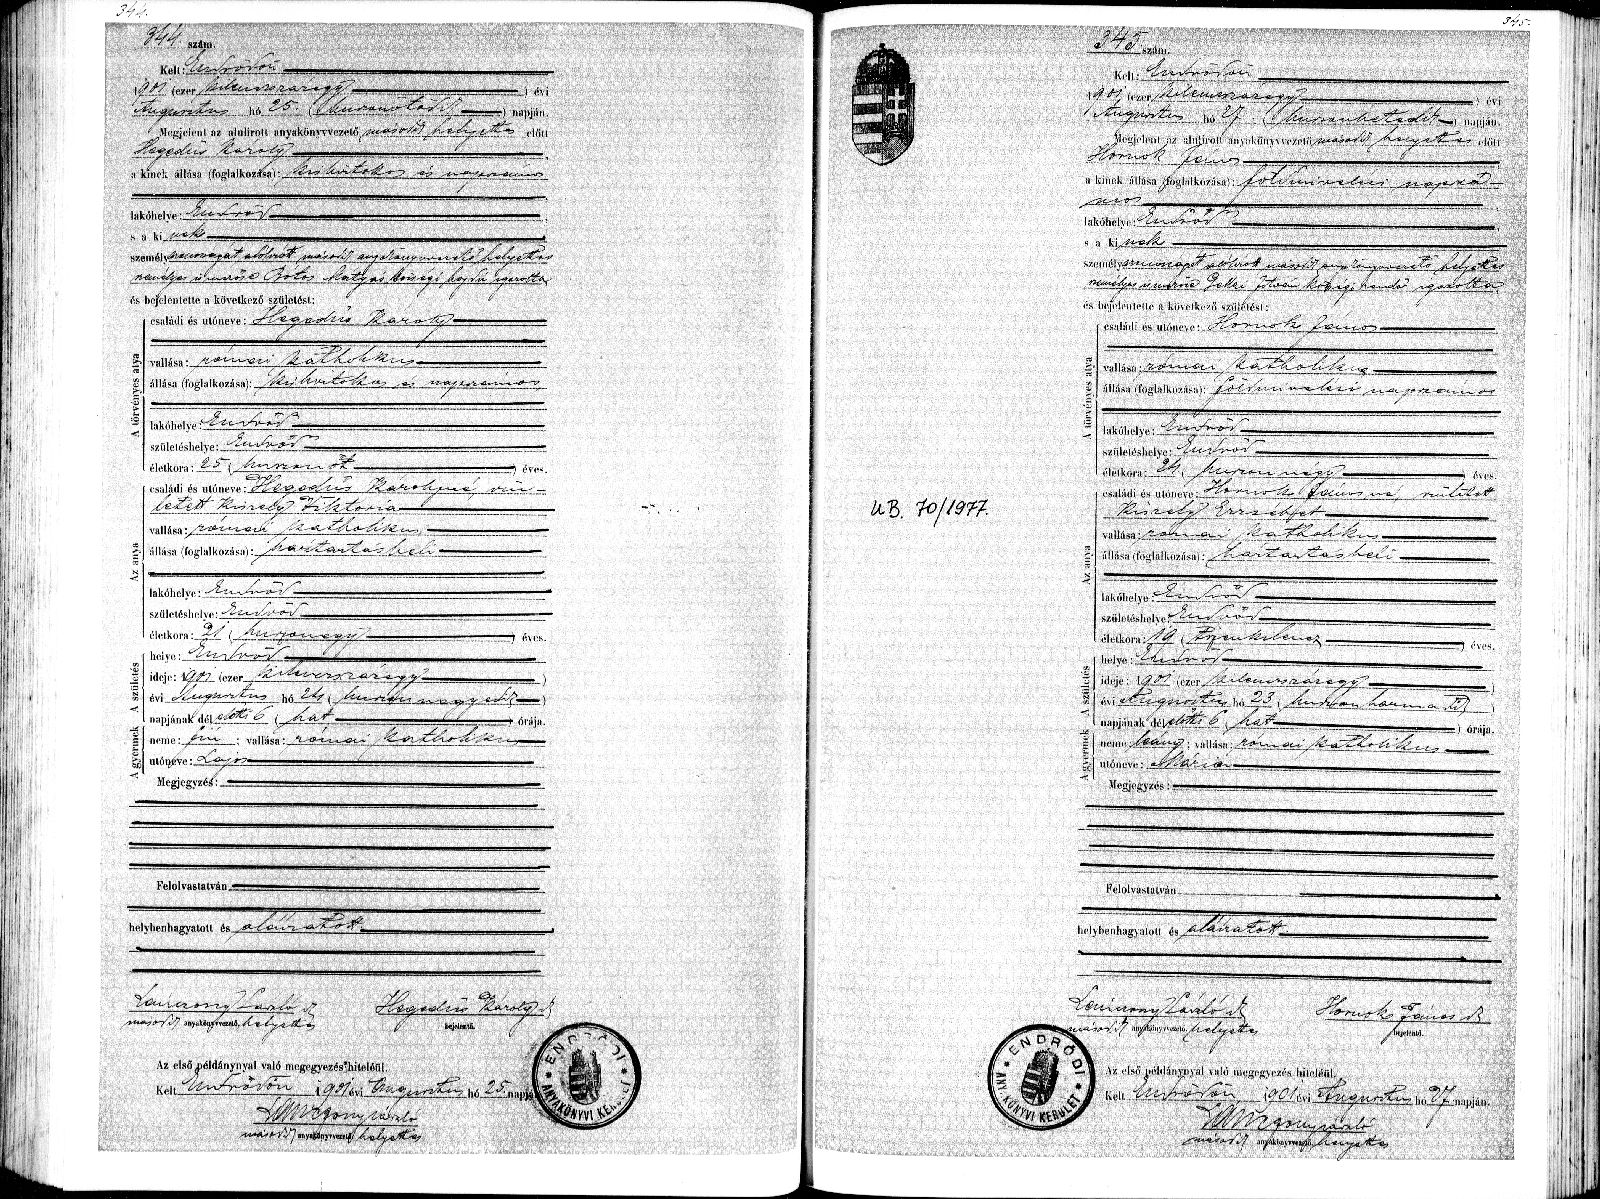 344.
344 szám.
Kelt: Endrődön
1901 (ezer kilencszázegy) évi
Augusztus hó 25. (huszonötödik) napján.
Megjelent az alulirott anyakönyvvezető második helyettes előtt
Hegedüs Károly
a kinek állása (foglalkozása): kisbirtokos és napszámos
lakóhelye: Endrőd
s a ki nek
személyazonosságát alólirott második anyakönyvvezető helyettes
és bejelentette a következő születést:
A törvényes atya
családi és utóneve: Hegedüs Károly
vallása: római katholikus
állása (foglalkozása): kisbirtokos és napszámos
lakóhelye: Endrőd
születéshelye: Endrőd
életkora: 25 (huszonöt) éves.
Az anya
családi és utóneve: Hegedüs Károlyné, szü-
letett Kiszely Viktoria
vallása: római katholikus
állása (foglalkozása): háztartásbeli
lakóhelye: Endrőd
születéshelye: Endrőd
életkora: 21 (huszonegy) éves.
A születés
helye: Endrőd
ideje: 1901 (ezer kilencszázegy)
évi Augusztus hó 24 (huszonnegyedik)
napjának dél előtti 6 (hat) órája.
A gyermek
neme: fiú; vallása: római katholikus
utóneve: Lajos
Megjegyzés:
Felolvastatván
helybenhagyatott és aláiratott
László h
második anyakönyvvezető, helyettes
Hegedüs Károly
bejelentő.
Az első példánynyal való megegyezés hiteléül.
Kelt Endrődön 1901 évi Augusztus hó 25 napján
második anyakönyvvezető helyettes
ENDRŐDI
ANYAKÖNYVI KERÜLET
345.
345 szám.
Kelt: Endrődön
1901 (ezer kilencszázegy) évi
Augusztus hó 27. (huszonhetedik) napján.
Megjelent az alulirott anyakönyvvezető második helyettes előtt
Hornok János
a kinek állása (foglalkozása): földmivelési napszá-
mos
lakóhelye: Endrőd
s a ki nek
személyazonosságát alólirott második anyakönyvvezető helyettes
és bejelentette a következő születést:
A törvényes atya
családi és utóneve: Hornok János
vallása: római katholikus
állása (foglalkozása): földmivelési napszámos
lakóhelye: Endrőd
születéshelye: Endrőd
életkora: 24 (huszonnégy) éves.
Az anya
családi és utóneve: Hornok Jánosné, született
Kiszely Erzsébet
vallása: római katholikus
állása (foglalkozása): háztartásbeli
lakóhelye: Endrőd
születéshelye: Endrőd
életkora: 19 (tizenkilencz) éves.
A születés
helye: Endrőd
ideje: 1901 (ezer kilencszázegy)
évi Augusztus hó 23 (huszonharmadik)
napjának dél előtti 6 (hat) órája.
A gyermek
neme: leány; vallása: római katholikus
utóneve: Mária
Megjegyzés:
Felolvastatván
helybenhagyatott és aláiratott
László h
második anyakönyvvezető, helyettes
Hornok János
bejelentő.
Az első példánynyal való megegyezés hiteléül.
Kelt Endrődön, 1901 évi Augusztus hó 27 napján.
második anyakönyvvezető, helyettes
ENDRŐDI
ANYAKÖNYVI KERÜLET
UB. 70/1977.